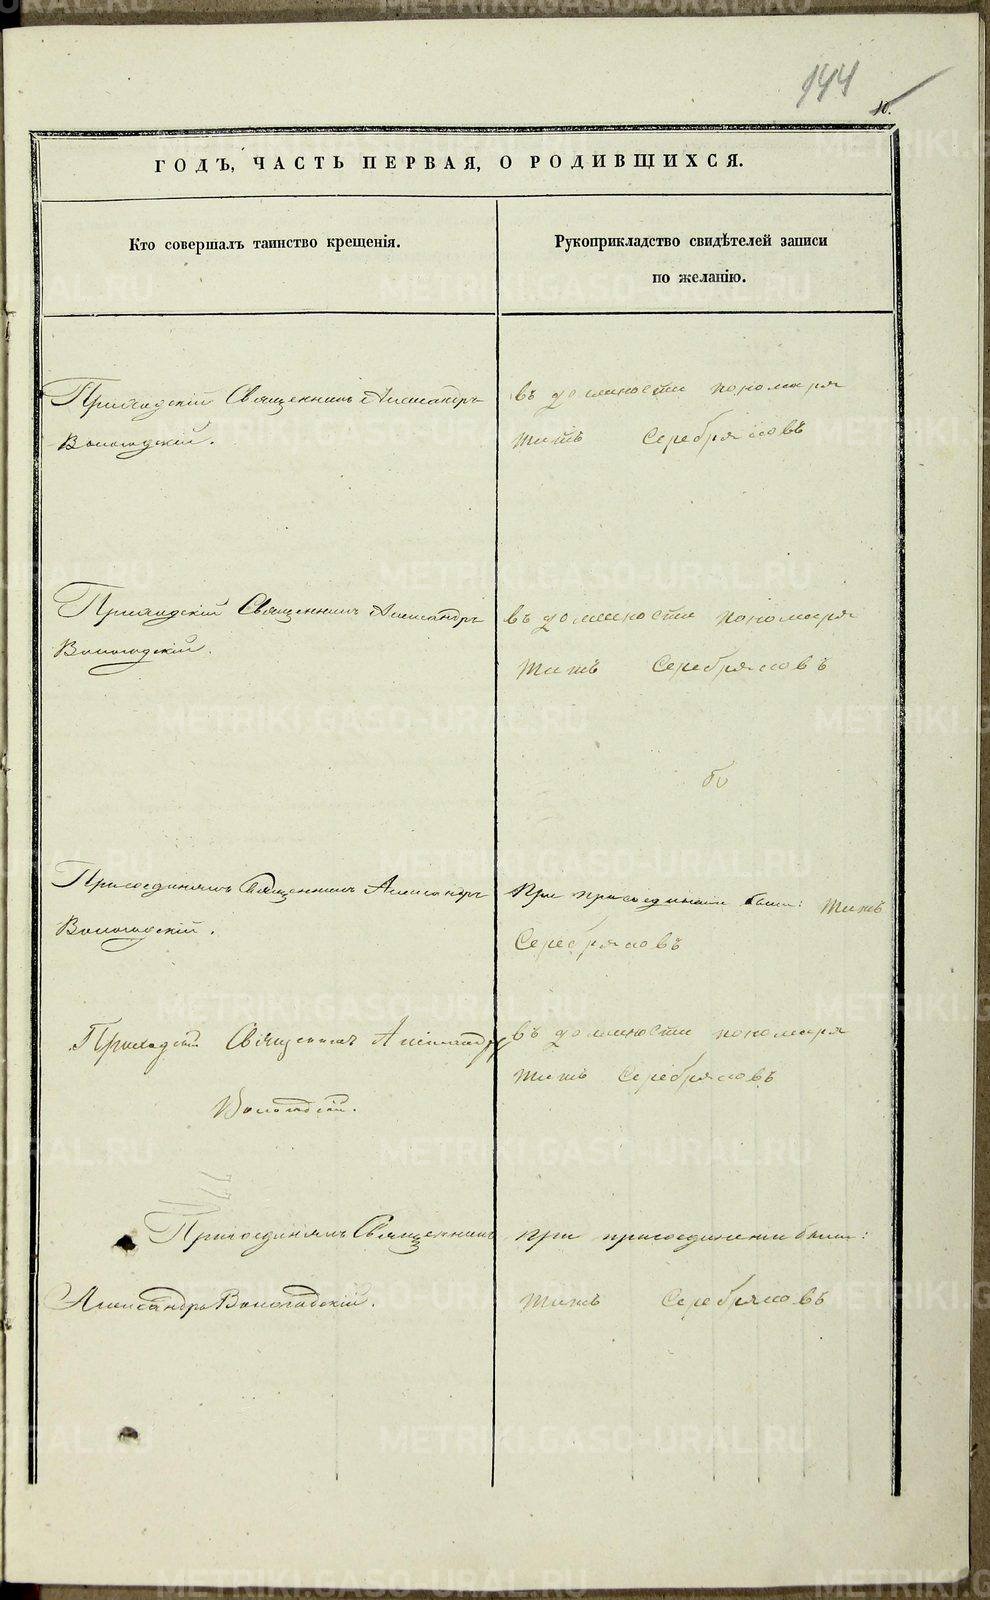 144
10.
ГОДЪ, ЧАСТЬ ПЕРВАЯ, О РОДИВШИХСЯ.
Кто совершалъ таинство крещенія.
Рукоприкладство свидѣтелей записи
по желанію.
Приходскій Священникъ Александръ
Вологодскій.
въ должности пономаря
Титъ Серебряковъ
Приходскій Священникъ Александръ
Вологодскій.
въ должности пономаря
Титъ Серебряковъ
Присоединялъ Священникъ Александръ
Вологодскій.
При присоединении были: Титъ
Серебряковъ
Приходскій Священникъ Александръ
Вологодскій.
въ должности пономаря
Титъ Серебряковъ
Присоединялъ Священникъ
Александръ Вологодскій.
при присоединении были:
Титъ Серебряковъ
METRIKI.GASO-URAL.RU